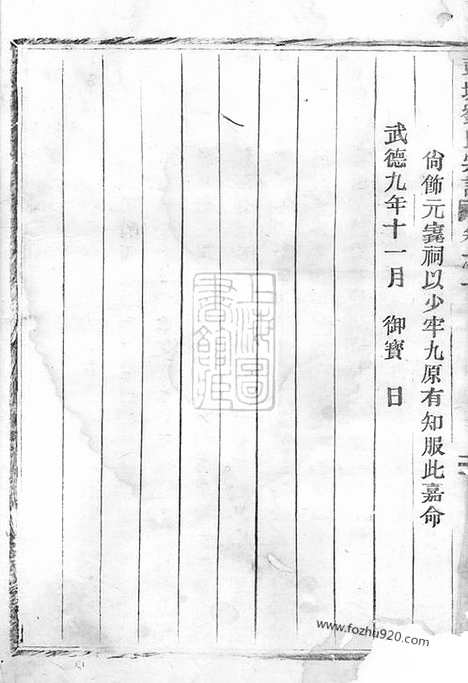 尙飾元寔祠以少牢九原有知服此嘉命
武德九年十一月 御寳 日
上海圖書館藏
www.fozhu920.com